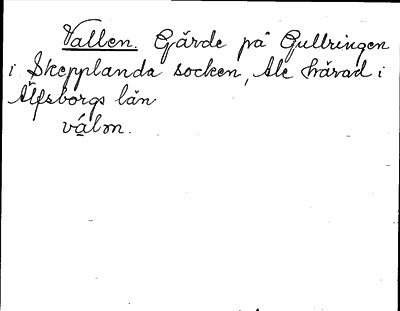 Vallen. Gärde på Gullringen
i Skepplanda socken, Ale härad i
Älfsborgs län
vålm.